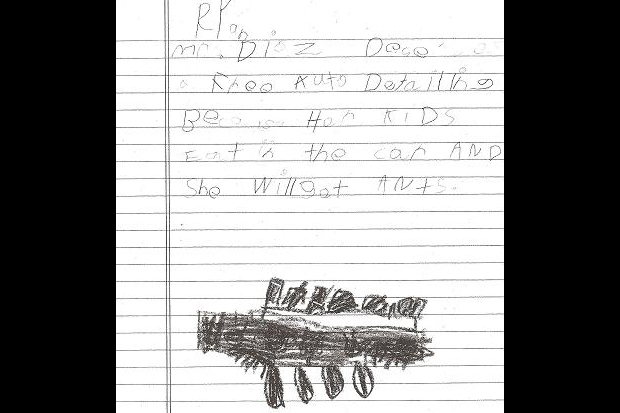 RYan
mr. Diaz
a Free Auto Detailing
Because Her KIDS
Eat in the car AND
She Will get ANts.